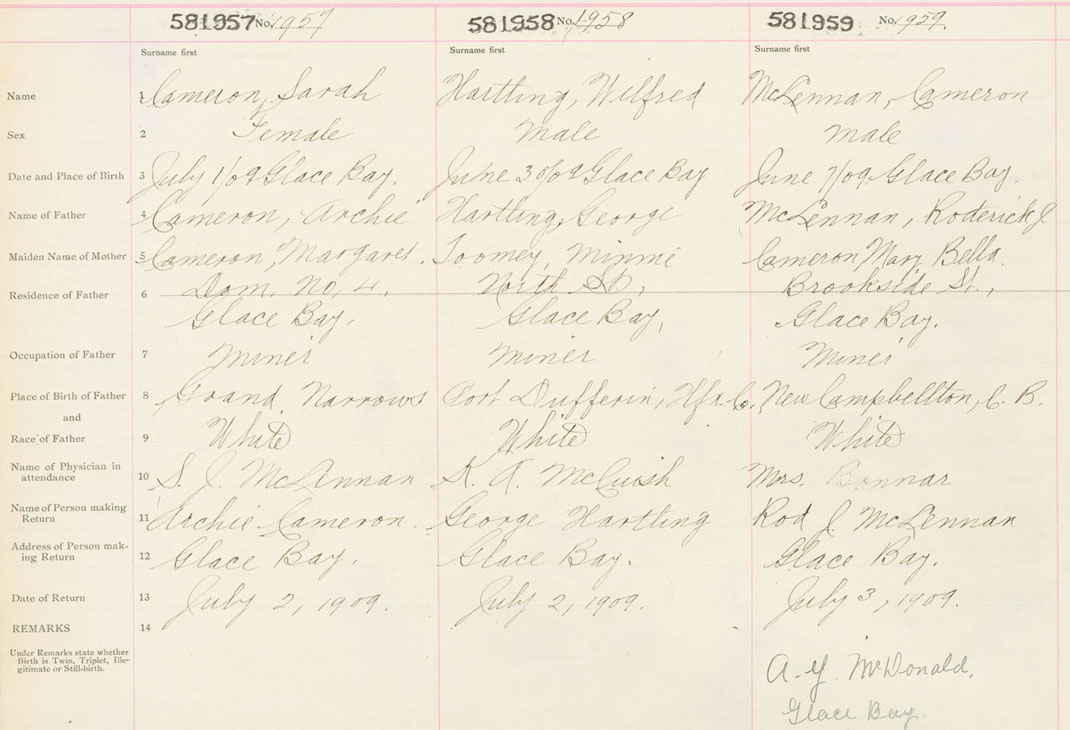 581957 No. 1957 581958 No. 1958 581959 No. 1959.
Surname first Surname first Surname first
Name 1 Cameron, Sarah Hartling, Wilfred McLennan, Cameron
Sex 2 Female Male Male
Date and Place of Birth 3 July 1/09 Glace Bay. June 30/09 Glace Bay June 7/09 Glace Bay.
Name of Father 4 Cameron, Archie Hartling, George McLennan, Roderick J
Maiden Name of Mother 5 Cameron, Margaret. Toomey, Minnie Cameron Mary Bella.
Residence of Father 6 Dom. No. 4, North St., Brookside St.,
Glace Bay. Glace Bay, Glace Bay.
Occupation of Father 7 Miner Miner Miner
Place of Birth of Father 8 Grand Narrows Port Dufferin, Hfx. Co. New Campbellton, C. B.
and
Race of Father 9 White White White
Name of Physician in
attendance 10 S. J. McLennan McCuish Mrs. Bonnar
Name of Person making
Return 11 Archie Cameron. George Hartling Rod J. McLennan
Address of Person mak-
ing Return 12 Glace Bay. Glace Bay. Glace Bay.
Date of Return 13 July 2, 1909. July 2, 1909. July 3, 1909.
REMARKS 14
Under Remarks state whether
Birth is Twin, Triplet, Ille-
gitimate or Still-birth.
A. Y. McDonald,
Glace Bay.